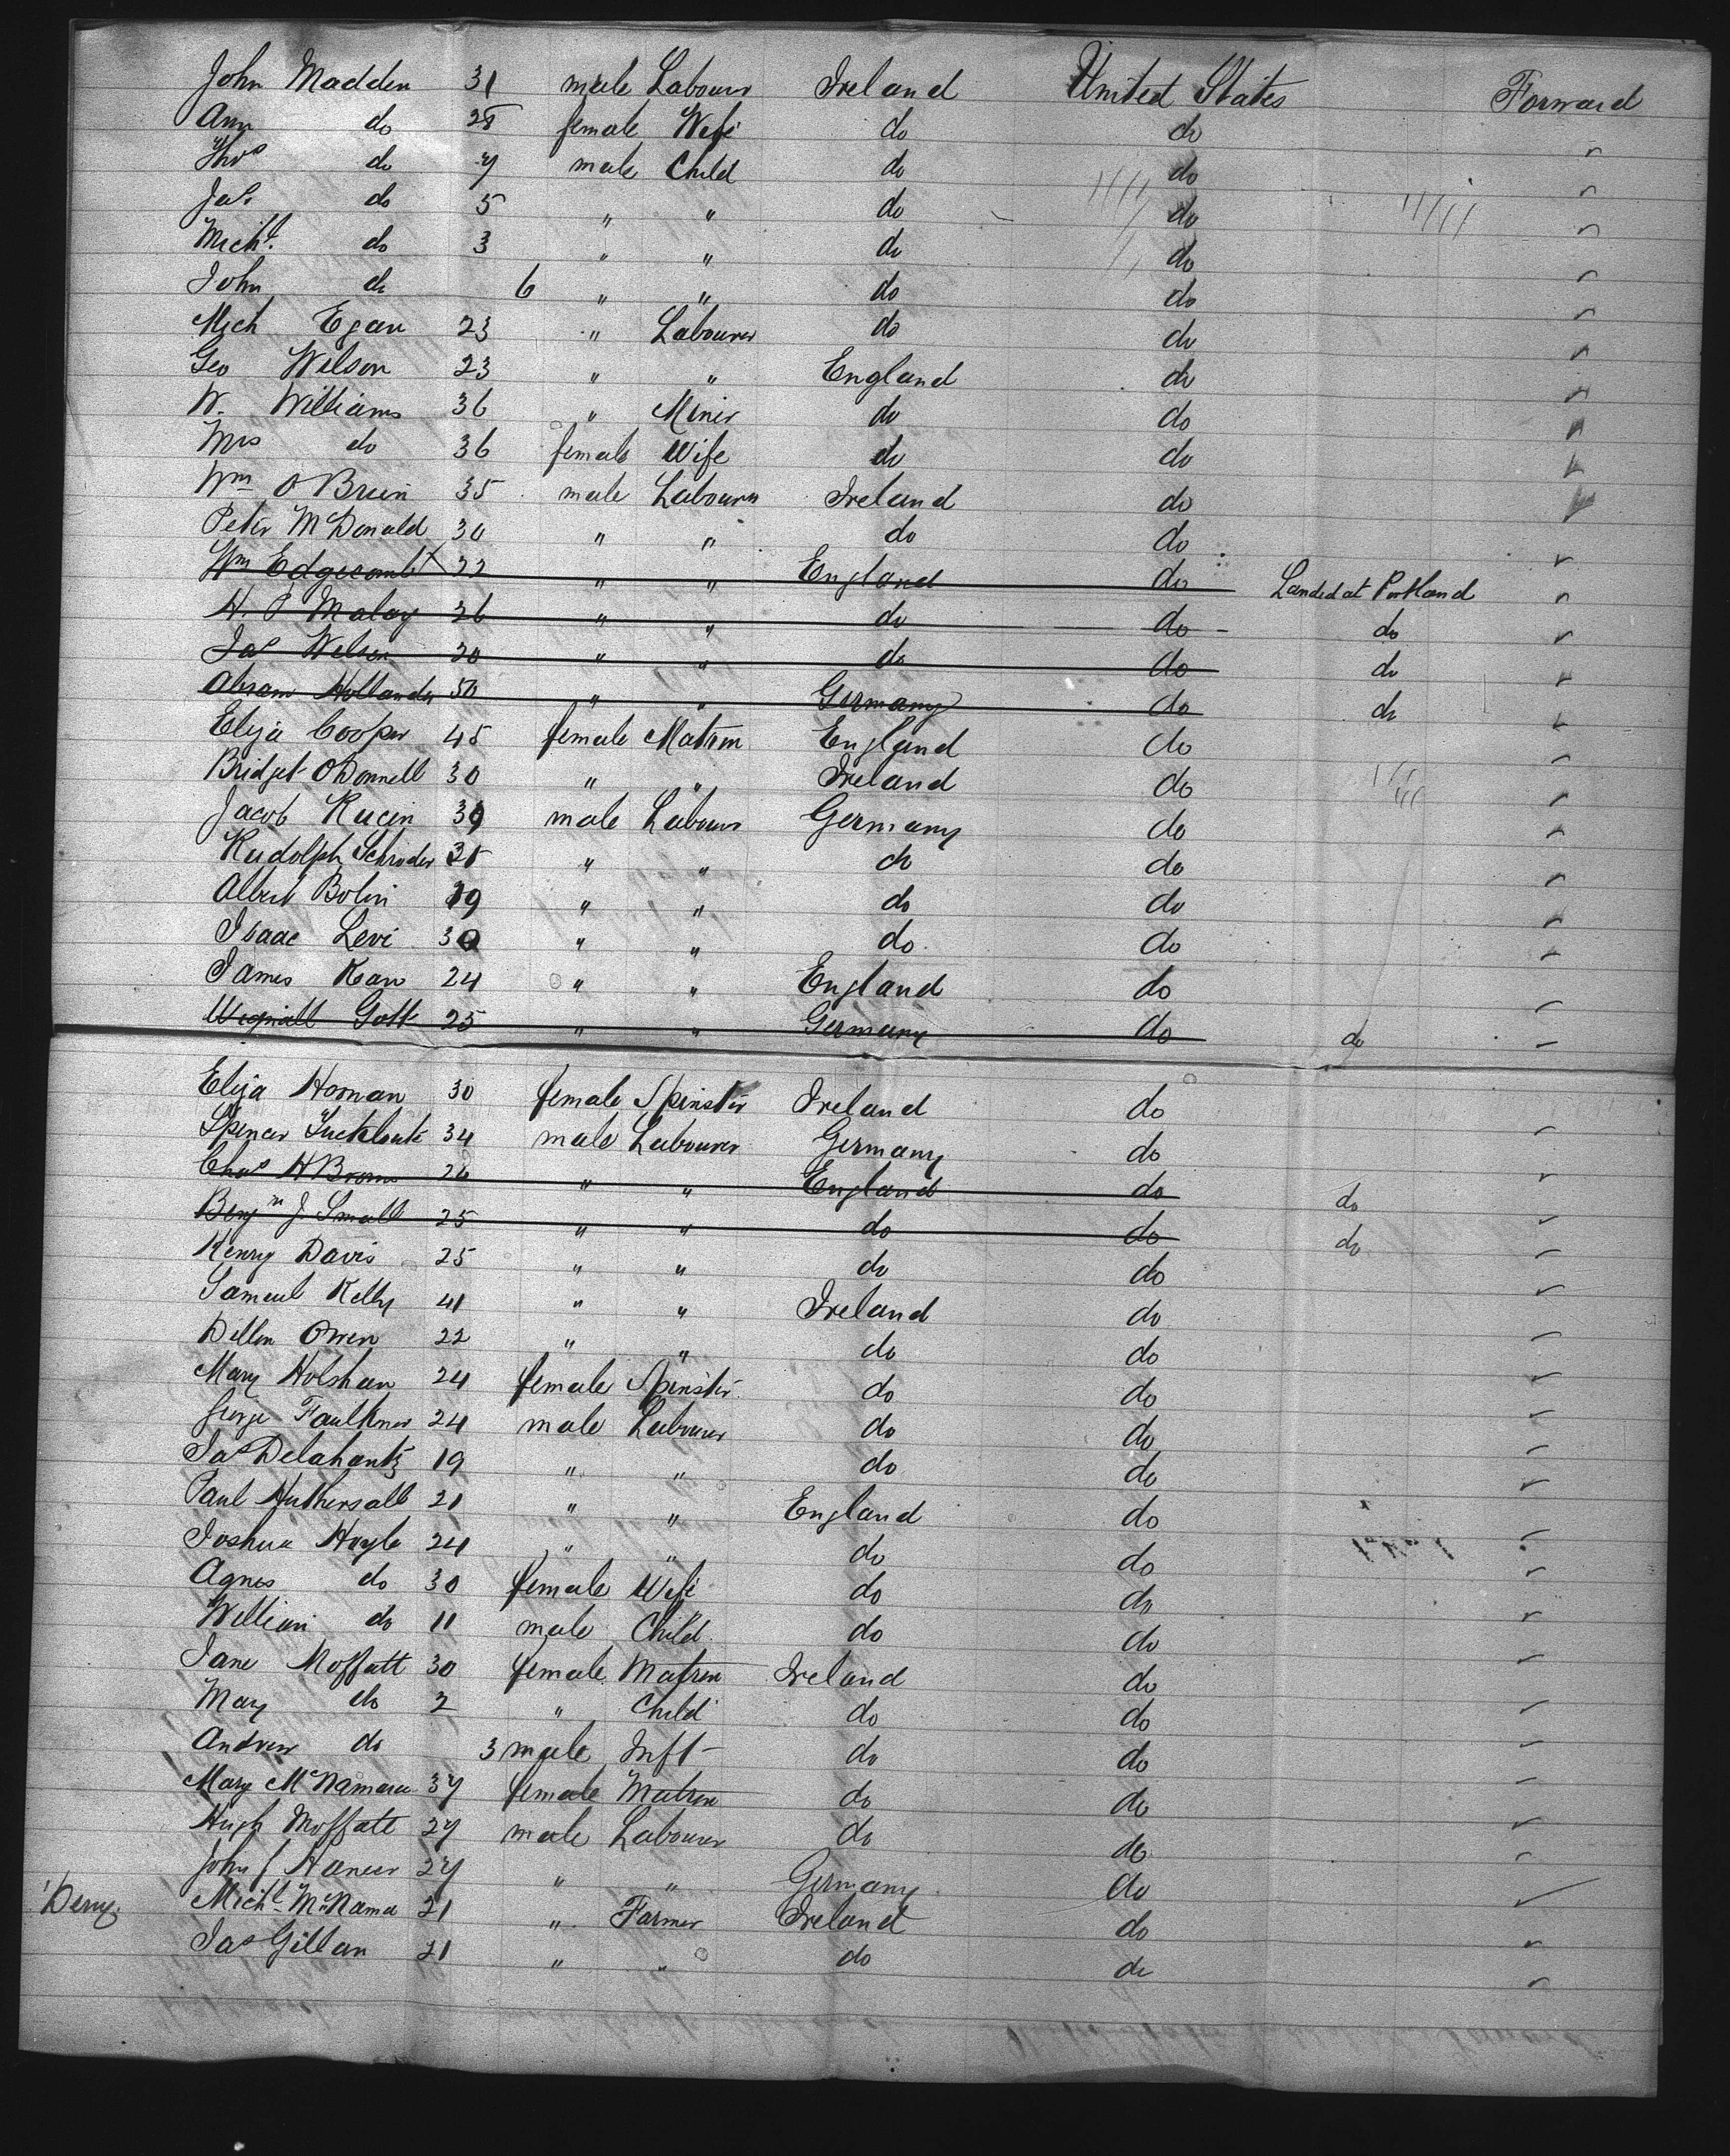 John Madden 31 male Labourer Ireland United States Forward
Ann do 28 female Wife do do "
Thos do 7 male Child do do "
Jas do 5 " " do do "
Michl. do 3 " " do do "
John do 6 " " do do "
Mich Egan 23 " Labourer do do "
Geo Wilson 23 " " England do "
W. Williams 36 " Miner do do "
Mrs do 36 female Wife do do "
Wm O Brien 35 male Labourer Ireland do "
Peter McDonald 30 " " do do "
Wm Edgecomb X 22 " " England do Landed at Portland "
H. P Maloy 26 " " do do do "
Jas Wilson 20 " " do do do "
Abram Hollander 50 " " Germany do do "
Eliza Cooper 45 female Matron England do "
Bridget O Donnell 30 " " Ireland do "
Jacob 39 male Labourer Germany do "
Rudolph Schroder " " do do "
Albert Bolin 19 " " do do "
Isaac Levi 30 " " do do "
James Kean 24 " " England do "
Gott 25 " " Germany do do "
Eliza Hornan 30 female Spinster Ireland do "
Spencer 34 male Labourer Germany do "
Chas H Brown 26 " " England do do "
Benjm J. Small 25 " " do do do "
Henry Davis 25 " " do do "
Sameul Kelly 41 " " Ireland do "
Dillon Owen 22 " " do do "
Mary Holshan 24 female Spinster do do "
George Faulkner 24 male Labourer do do "
Jas Delahanty 19 " " do do "
Paul Huthersall 21 " " England do "
Joshua Hoyle 24 " " do do "
Agnes do 30 female Wife do do "
William do 11 male Child do do "
Jane Moffatt 30 female Matron Ireland do "
Mary do 2 " Child do do "
Andrew do 3 male Inft do do "
Mary McNamara 37 female Matron do do "
Hugh Moffatt 27 male Labourer do do "
John 27 " " Germany do "
Derry. Michl McNama 21 " Farmer Ireland do "
Jas Gillan 21 " " do do "